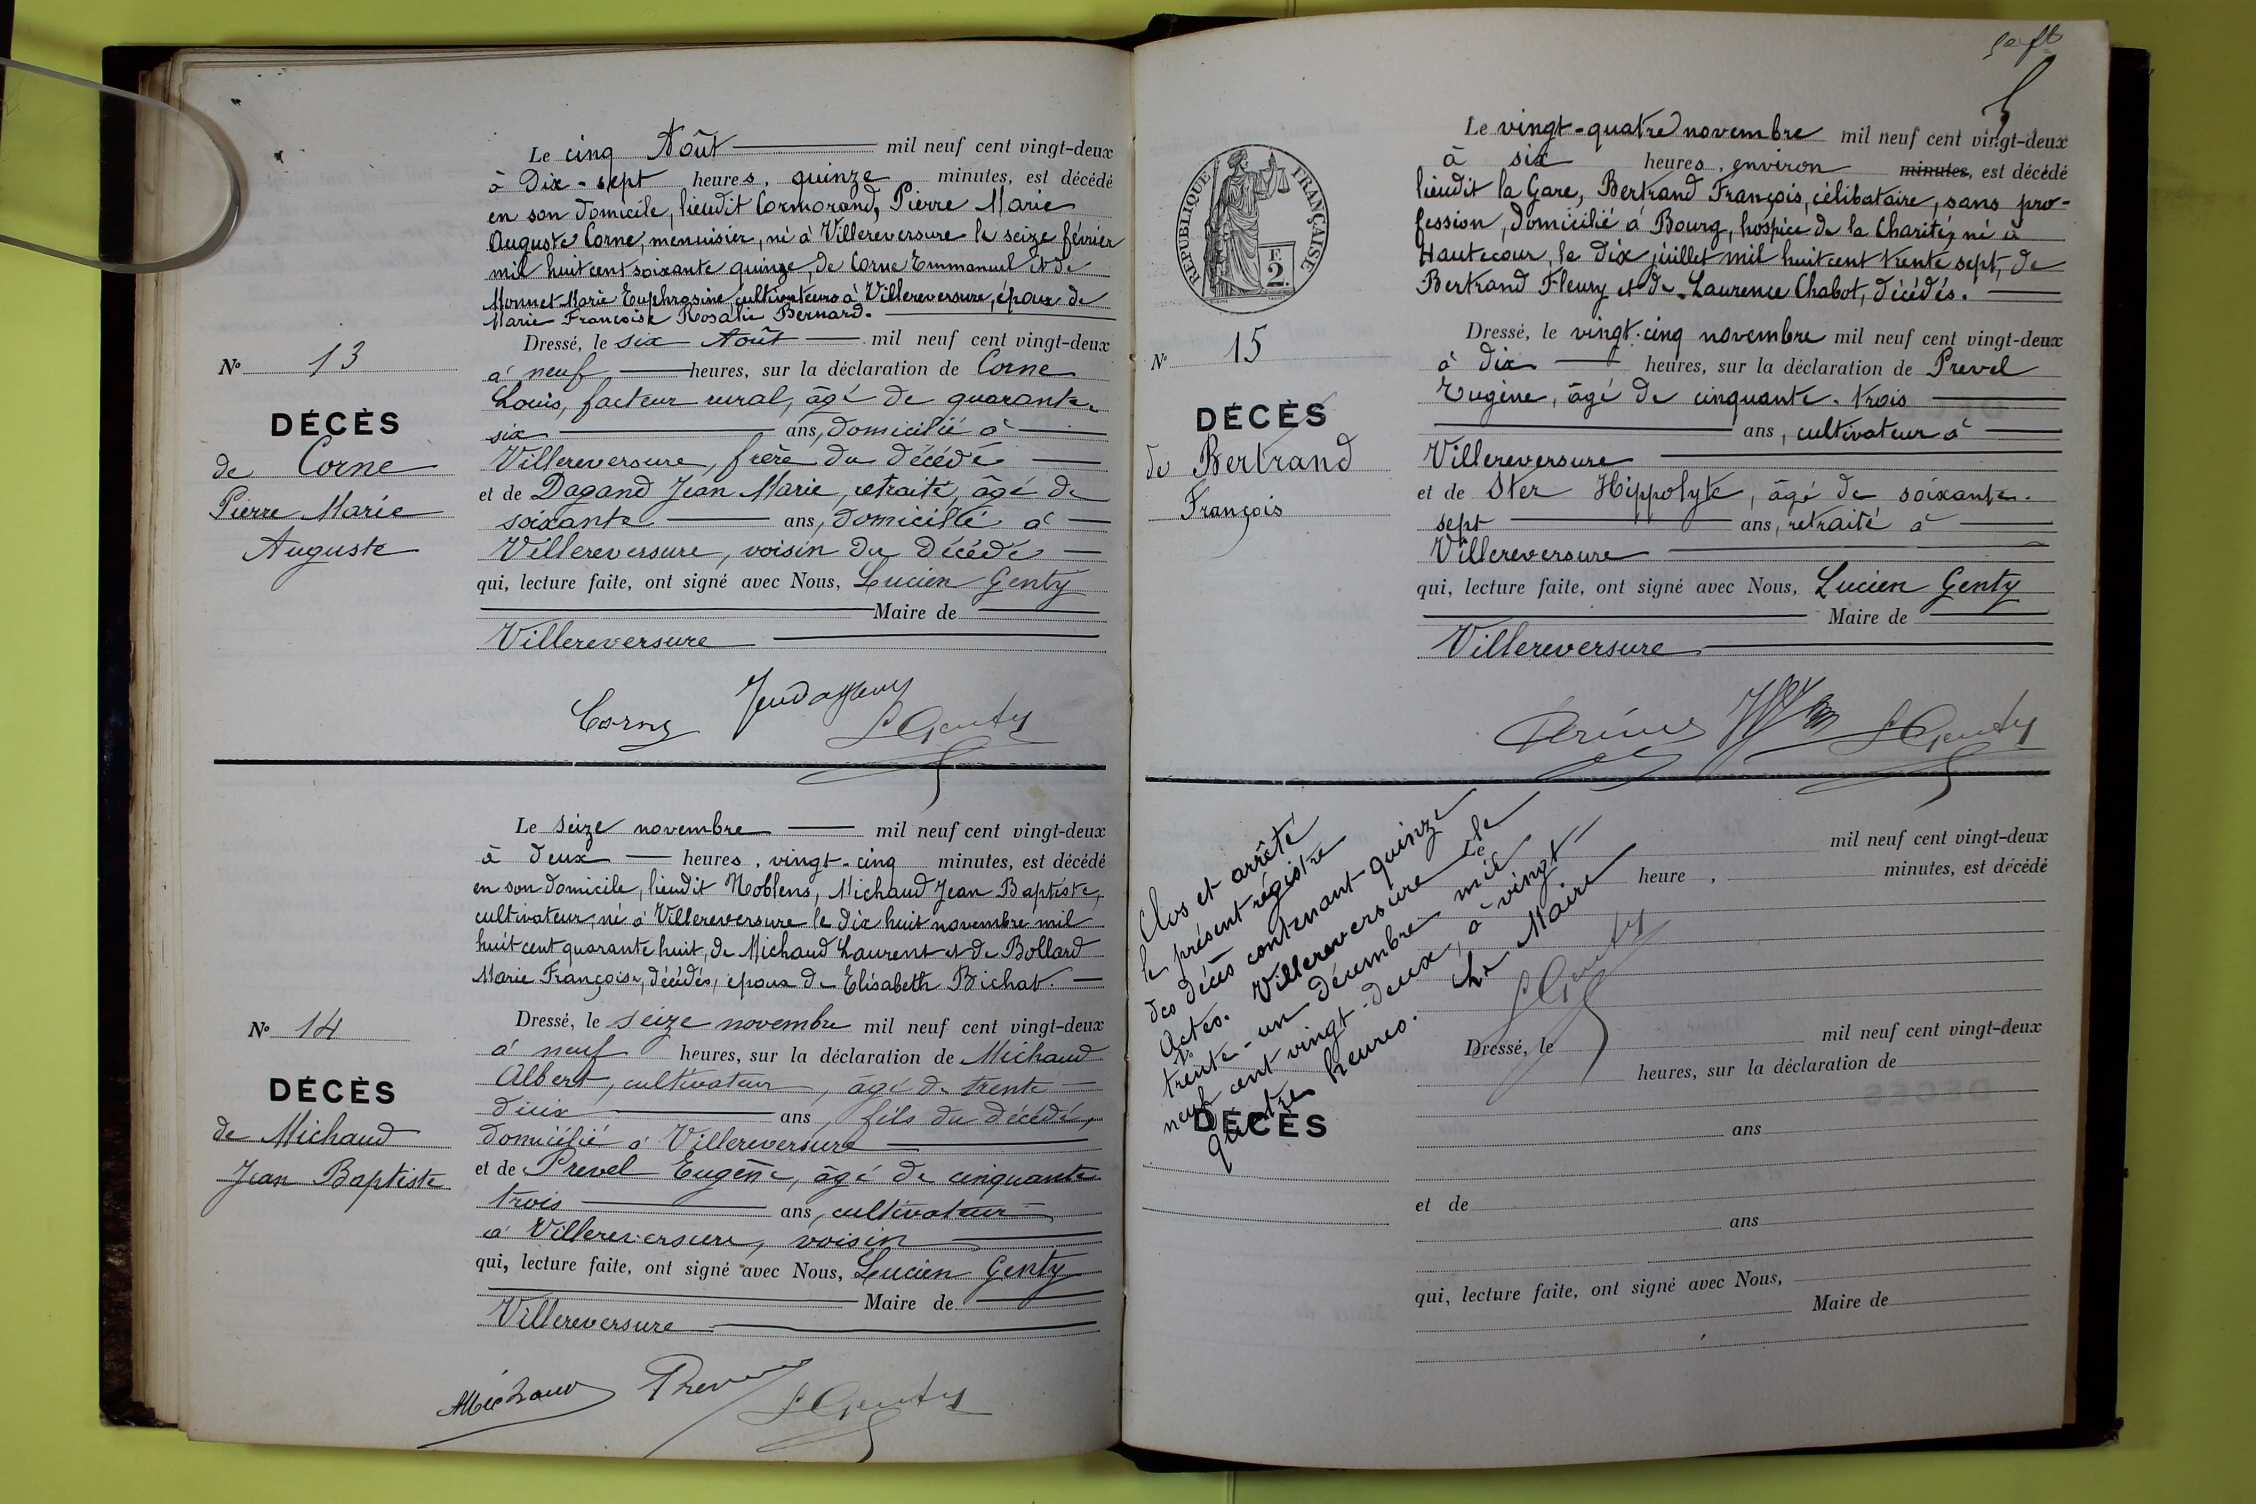 Le cinq Août mil neuf cent vingt-deux
à Dix-sept heures, quinze minutes, est décédé
en son domicile, lieudit Cormorand, Pierre Marie
Auguste Corne, menuisier, né à Villereversure le seize février
mil huit cent soixante quinze, de Corne Emmanuel et de
Monnet Marie Euphrosine, cultivateurs à Villereversure, époux de
Marie Françoise Rosalie Bernard.
Nº 13
DÉCÈS
de Corne
Pierre Marie
Auguste
Dressé, le six Août mil neuf cent vingt-deux
à neuf heures, sur la déclaration de Corne
Louis, facteur rural, âgé de quarante-
six ans, domicilié à
Villereversure, frère du décédé
et de Dagand Jean Marie, retraité, âgé de
soixante ans, domicilié à
Villereversure, voisin du décédé
qui, lecture faite, ont signé avec Nous, Lucien Genty
Maire de
Villereversure
Corne
L Genty
Le seize novembre mil neuf cent vingt-deux
à deux heures, vingt-cinq minutes, est décédé
en son domicile, lieudit Noblens, Michaud Jean Baptiste,
cultivateur, né à Villereversure le dix huit novembre mil
huit cent quarante huit, de Michaud Laurent et de Bollard
Marie Françoise, décédés, époux de Elisabeth Bichat.
Nº 14
DÉCÈS
de Michaud
Jean Baptiste
Dressé, le seize novembre mil neuf cent vingt-deux
à neuf heures, sur la déclaration de Michaud
Albert, cultivateur, âgé de trente
deux ans, fils du décédé,
domicilié à Villereversure
et de Prevel Eugène, âgé de cinquante
trois ans, cultivateur
à Villereversure, voisin
qui, lecture faite, ont signé avec Nous, Lucien Genty
Maire de
Villereversure
Michaud Prevel
L Genty
sept
RÉPUBLIQUE FRANÇAISE
F.
2.
Le vingt-quatre novembre mil neuf cent vingt-deux
à six heures, environ minutes, est décédé
lieudit la Gare, Bertrand François, célibataire, sans pro-
fession, domicilié à Bourg, hospice de la Charité, né à
Hautecour, le dix juillet mil huit cent trente sept, de
Bertrand Fleury et de Laurence Chabot, décédés.
Nº 15
DÉCÈS
de Bertrand
François
Dressé, le vingt-cinq novembre mil neuf cent vingt-deux
à dix heures, sur la déclaration de Prevel
Eugène, âgé de cinquante-trois
ans, cultivateur à
Villereversure
et de Ster Hippolyte, âgé de soixante-
sept ans, retraité à
Villereversure
qui, lecture faite, ont signé avec Nous, Lucien Genty
Maire de
Villereversure
L Genty
Clos et arrêté
le présent régistre
des décès contenant quinze
Actes. Villereversure le
trente-un décembre mil
neuf cent vingt-deux, à vingt
quatre heures. Le Maire
L Genty
Le mil neuf cent vingt-deux
heure, minutes, est décédé
DÉCÈS
Dressé, le mil neuf cent vingt-deux
heures, sur la déclaration de
ans
et de
ans
qui, lecture faite, ont signé avec Nous,
Maire de